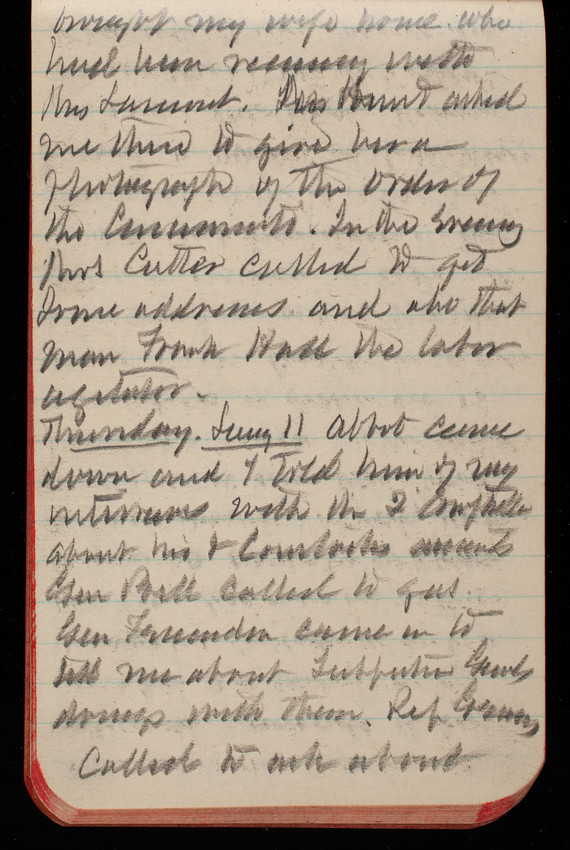 brought my wife home who
had been receiving with
Mrs Lamont. Mrs Hunt asked
me there to give her a
photograph of the order of
the Cincinnati. In the Evening
Mrs Cutter called to get
some addresses and also that
man Frank Hall the labor
agitator.
Thursday. Jany 11 Abbot came
down and I told him of my
interviews with the 2 Comptroller
about his &
Gen Bell called to
Gen came in to
tell me about
doings with them. Rep
Called to ask about